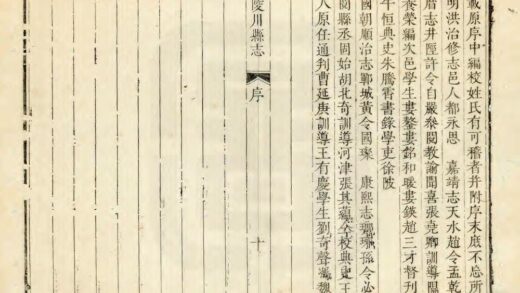 載原序中編校姓氏有可稽者并附序末庶不忘所
明洪治修志邑人都永思　嘉靖志天水趙令孟乾
曆志井陘許令自嚴叅閱教諭聞喜張堯卿訓導
養榮編次邑學生婁鏊婁銘和婁錟趙三才督刊
午恒典史朱騰霄書錄學吏徐陂
國朝順治志鄆城黃令國璨　康熙志瑯琊孫令必
閱縣丞固始胡北奇訓導河津張其蘊仝校典史王
人原任通判曹延庚訓導王有慶學生劉奇聲魏
陵川縣志　序　十